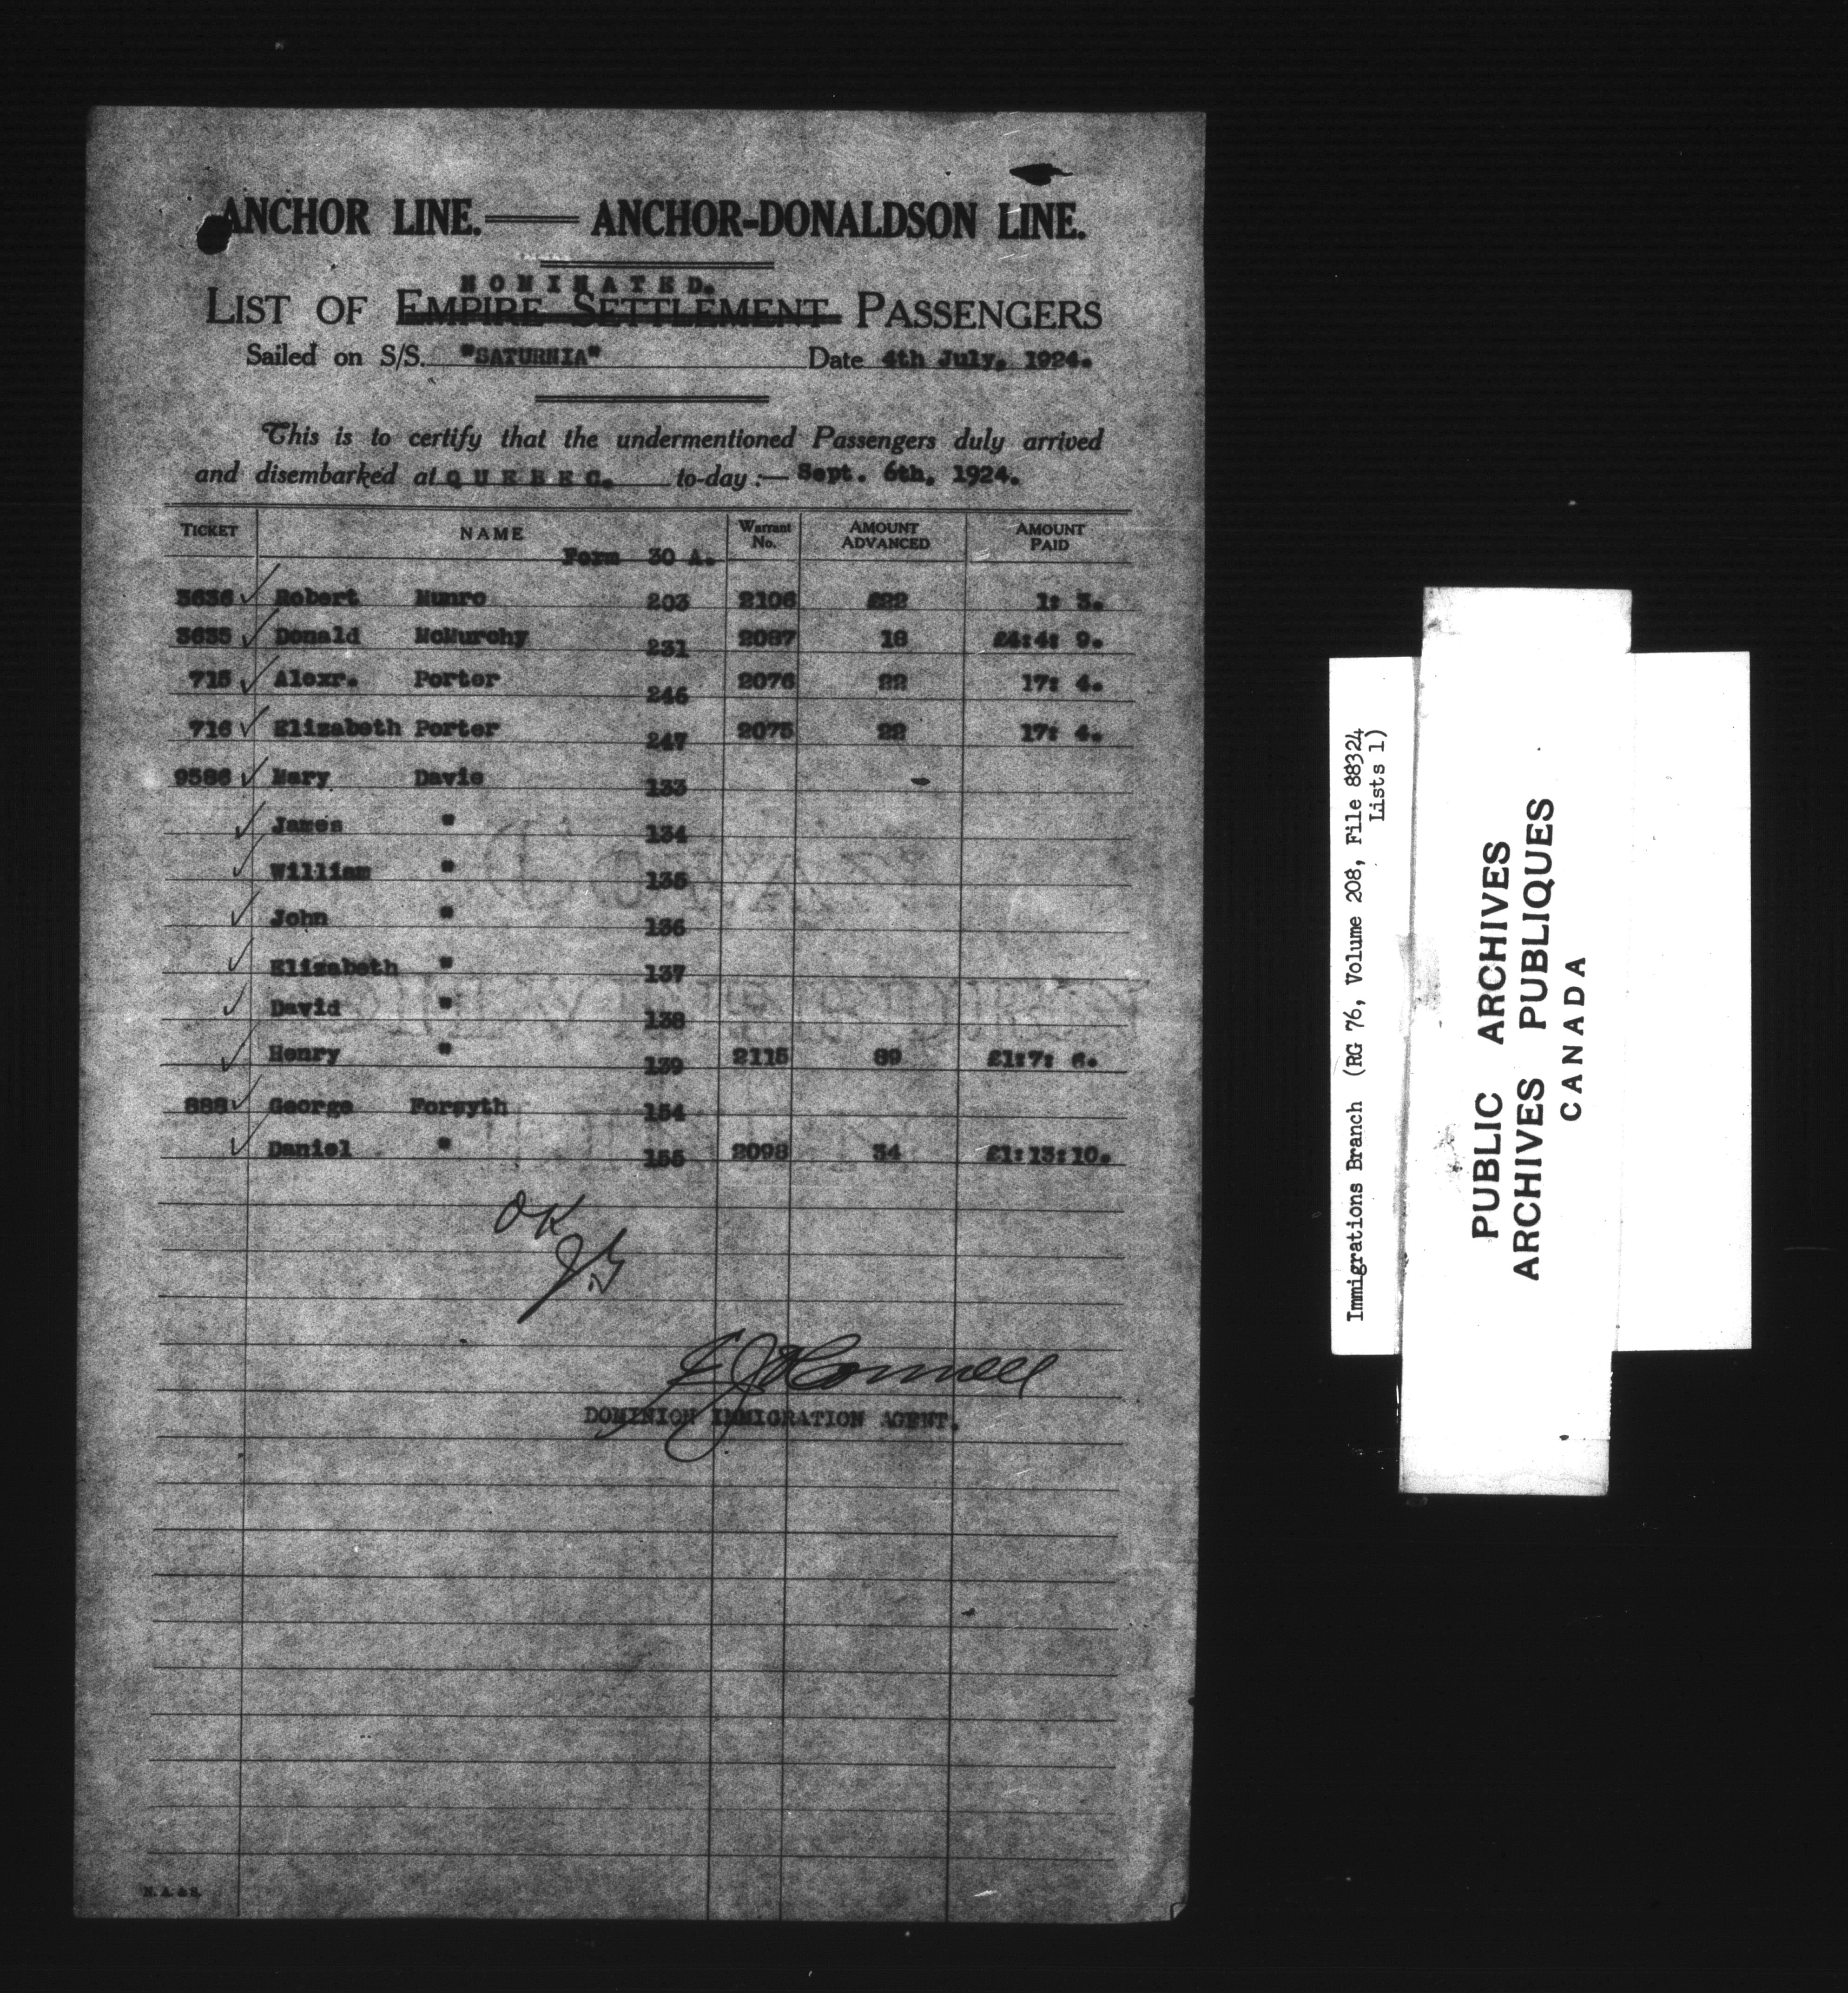 ANCHOR LINE. ANCHOR-DONALDSON LINE.
NOMINATED.
LIST OF EMPIRE SETTLEMENT PASSENGERS
Sailed on S/S. "SATURNIA" Date 4th July, 1924.
This is to certify that the undermentioned Passengers duly arrived
and disembarked at QUEBEC. to-day :— Sept. 6th, 1924.
TICKET NAME Warrant No. AMOUNT ADVANCED AMOUNT PAID
Form 30 A.
3636 Robert Munro 203 2106 £22 1: 3.
3635 Donald McMurchy 231 2087 18 £4:4: 9.
715 Alexr. Porter 246 2076 22 17: 4.
716 Elizabeth Porter 247 2075 22 17: 4.
9586 Mary Davie 133
James " 134
William " 135
John " 136
Elizabeth " 137
David " 138
Henry " 139 2115 89 £1:7: 6.
888 George Forsyth 154
Daniel " 155 2098 34 £1:13:10.
OK
DOMINION IMMIGRATION AGENT.
N. A. & R.
Immigrations Branch (RG 76, Volume 208, File 88324
Lists 1)
PUBLIC ARCHIVES
ARCHIVES PUBLIQUES
CANADA